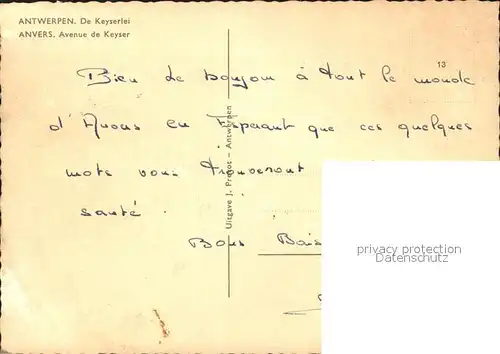 ANTWERPEN. De Keyserlei
ANVERS. Avenue de Keyser
13
Bien le bonjour à tout le monde
d'Anvers en Espérant que ces quelques
mots vous trouveront
santé.
Bons Bais
Uitgave J. Prévot - Antwerpen
privacy protection
Datenschutz